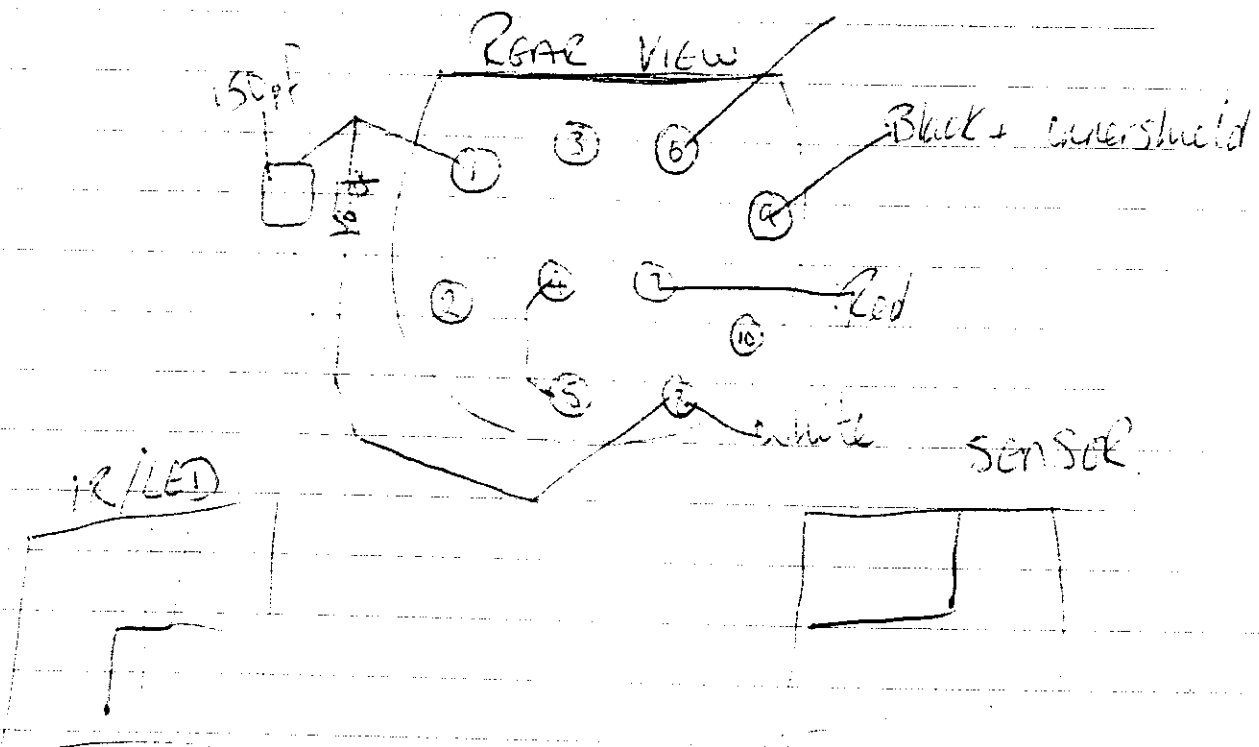 REAR VIEW
150pf
1
3
6
Black + innershield
9
2
4
7
Red
10
5
8
white
IR/LED
SENSOR